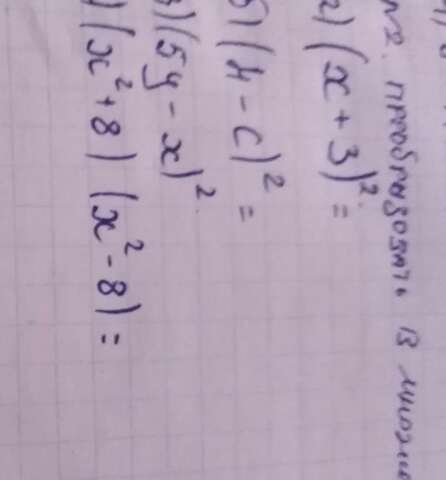 №2. преобразовать в
а) (x + 3)² =
б) (4 - c)² =
в) (5y - x)².
) (x² + 8) (x² - 8) =